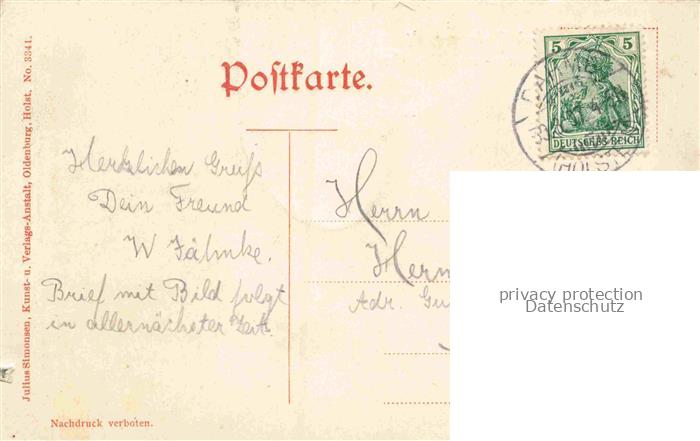 Postkarte.
5 5
DEUTSCHES REICH
(HOLST
Hertzlichen Gruß
Dein Freund
W Jähnke.
Brief mit Bild folgt
in allernächster Zeit.
Herrn
Herm
Adr. Gu
privacy protection
Datenschutz
Julius Simonsen, Kunst- u. Verlags-Anstalt, Oldenburg, Holst. No. 3341.
Nachdruck verboten.